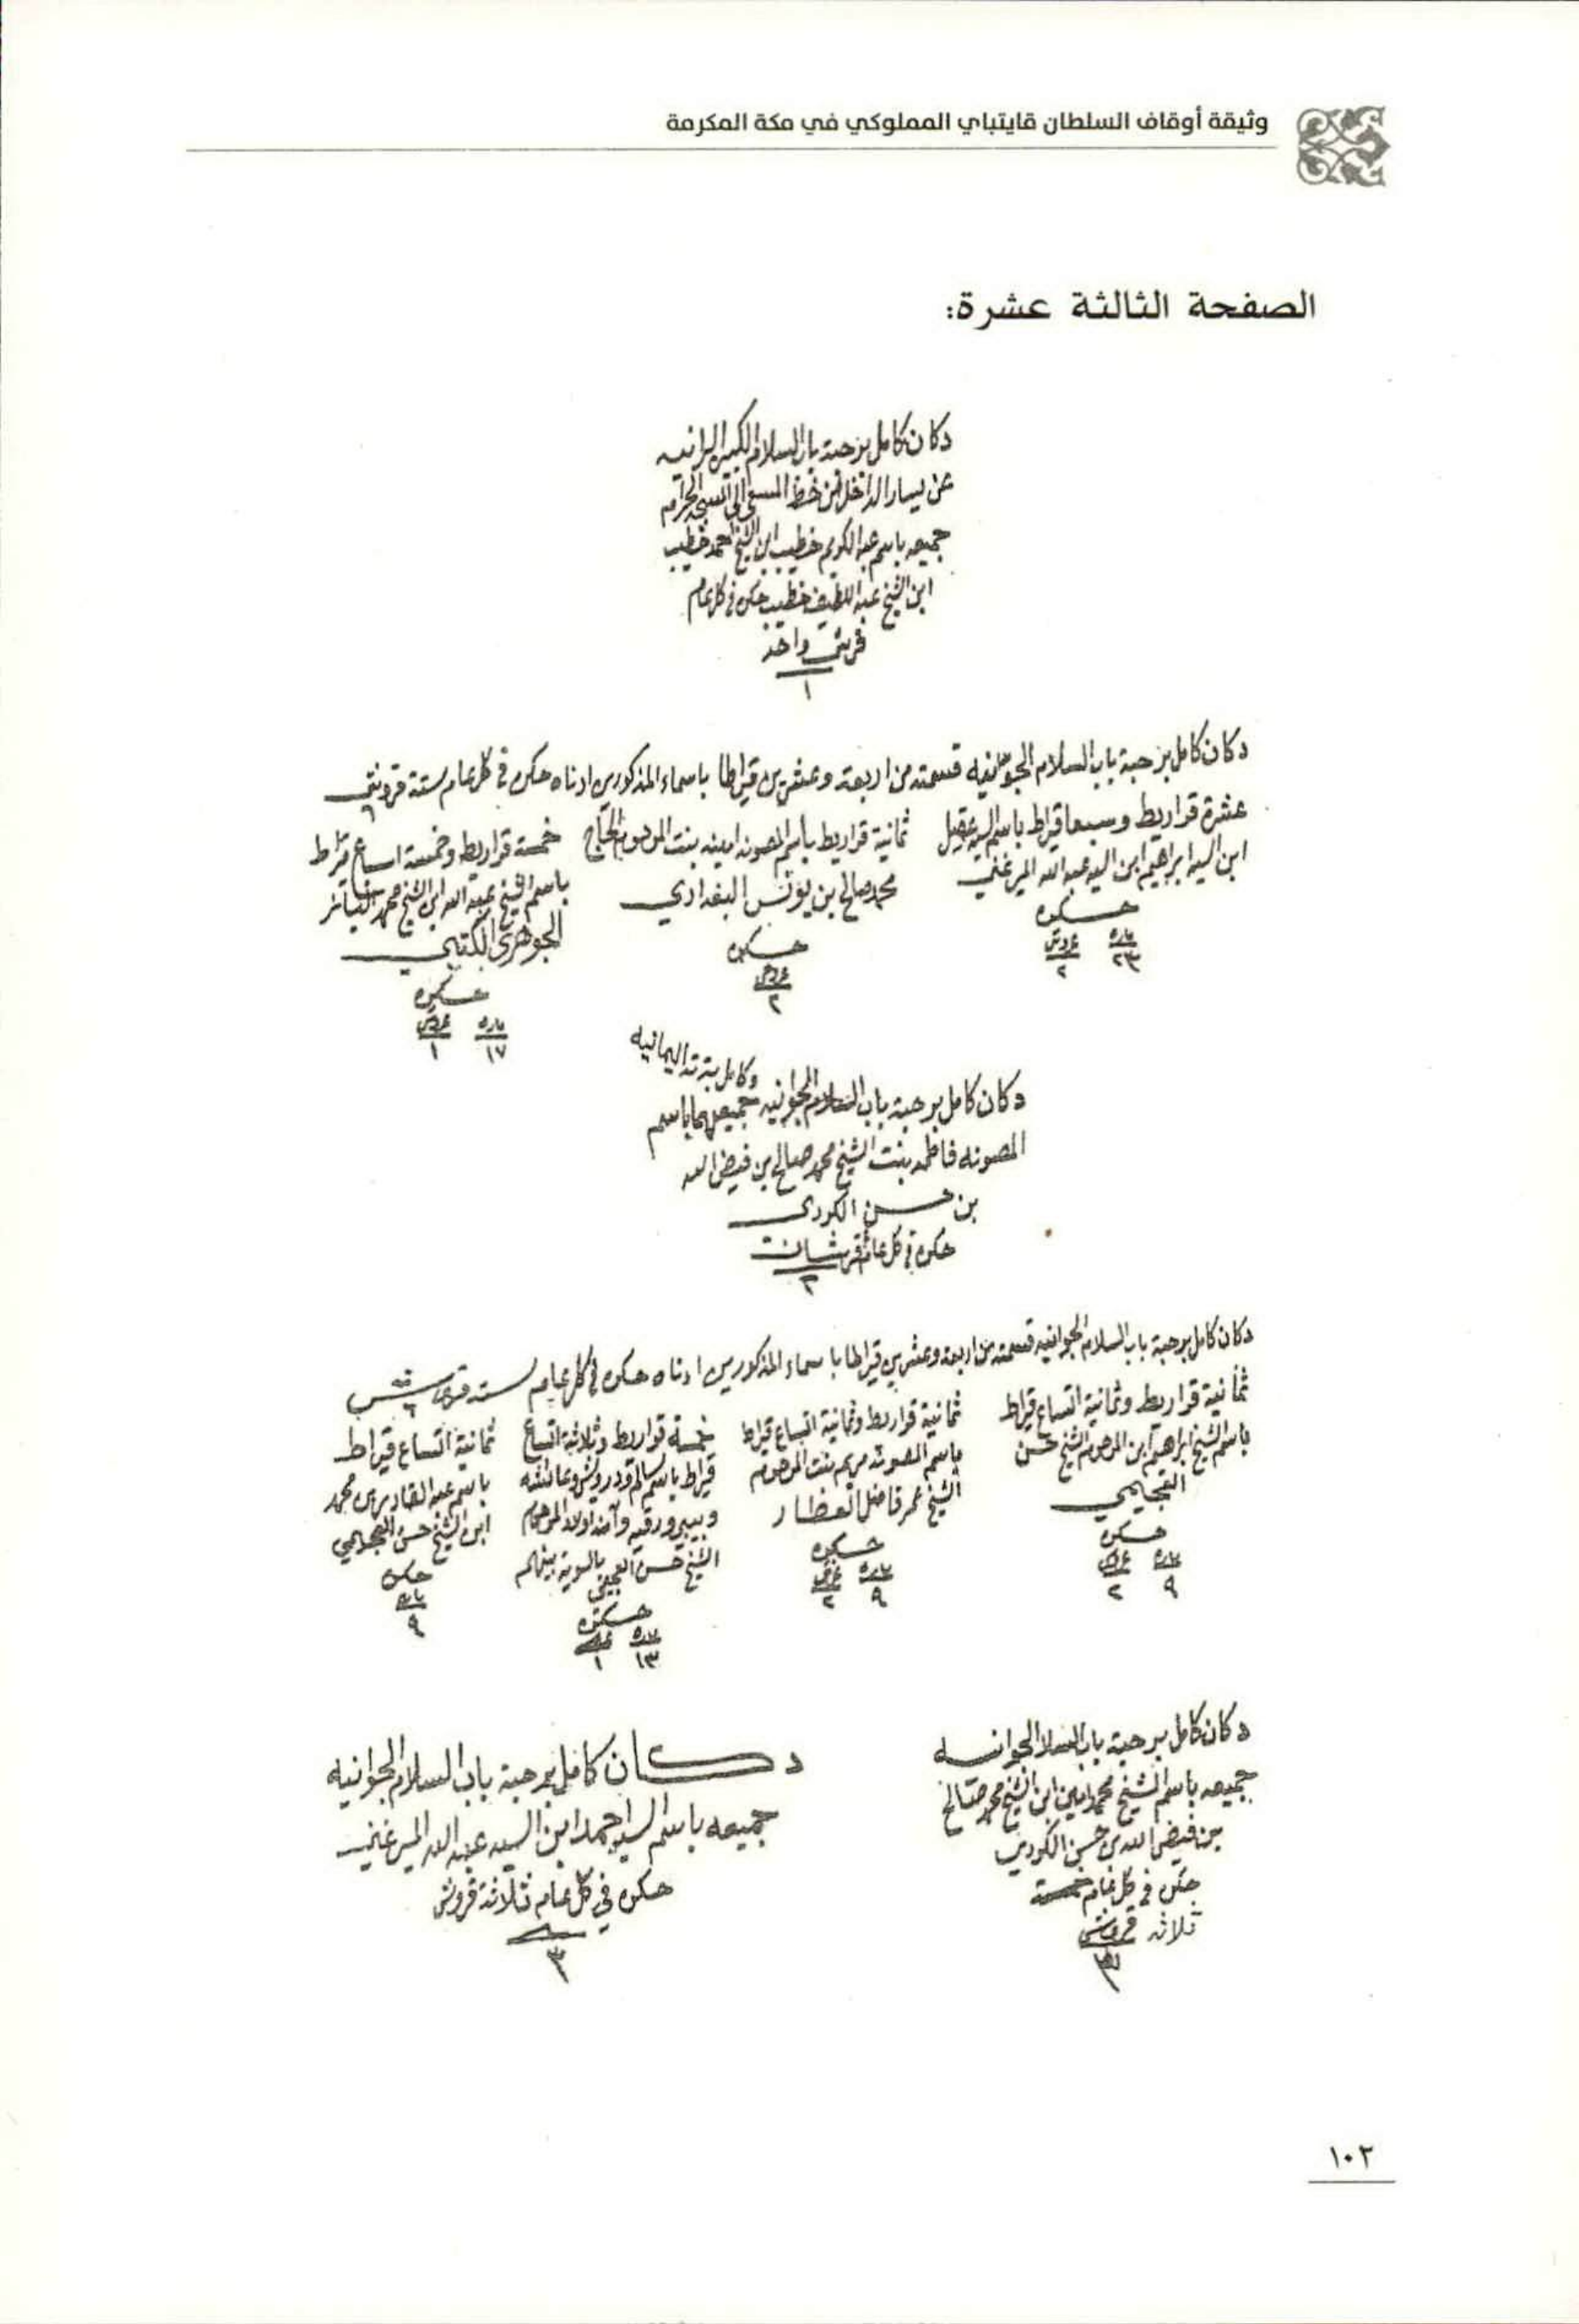 وثيقة أوقاف السلطان قايتباي المملوكي في مكة المكرمة
الصفحة الثالثة عشرة:
دكان كامل برحبة باب السلام الكبير البرانيه
عن يسار الداخل من خط المسعى الى المسجد الحرام
جميعه باسم عبد الكريم خطيب ابن الشيخ احمد خطيب
ابن الشيخ عبد اللطيف خطيب حكره في كل عام
قرش واحد
١
دكان كامل برحبة باب السلام الجوانيه قسمته من اربعة وعشرين قيراطا باسماء المذكورين ادناه حكره في كل عام ستة قروش
٦
عشرة قراريط وسبعا قيراط باسم السيد عقيل
ابن السيد ابراهيم ابن السيد عبد الله الميرغني
حكره
پاره قروش
٢٣ ٢
ثمانية قراريط باسم المصونه امينه بنت المرحوم الحاج
محمد صالح بن يونس البغدادي
حكره
قروش
٢
خمسة قراريط وخمسة اسباع قيراط
باسم الشيخ عبد الله ابن الشيخ محمد
الجوهري الكتبي
حكره
پاره قروش
١٧ ١
وكامل اليمانيه
دكان كامل برحبة باب السلام الجوانيه جميعهما باسم
المصونه فاطمه بنت الشيخ محمد صالح بن فيض الله
بن حسن الكردي
حكره في كل عام قرشان
٢
دكان كامل برحبة باب السلام الجوانيه قسمته من اربعة وعشرين قيراطا باسماء المذكورين ادناه حكره في كل عام ستة قروش
٦
ثمانية قراريط وثمانية اتساع قيراط
باسم الشيخ ابراهيم ابن المرحوم الشيخ حسن
العجيمي
حكره
پاره قروش
٩ ٢
ثمانية قراريط وثمانية اتساع قيراط
باسم المصونه مريم بنت المرحوم
الشيخ عمر فاضل العطار
حكره
پاره قروش
٩ ٢
خمسة قراريط وثلاثة اتساع
قيراط باسم سالم ودرويش وعائشه
ورقيه وآمنه اولاد المرحوم
الشيخ حسن العجيمي بالسوية بينهم
حكره
پاره
١٣ ١
ثمانية اتساع قيراط
باسم عبد القادر بن محمد
ابن الشيخ حسن العجيمي
حكره
پاره
٩
دكان كامل برحبة باب السلام الجوانيه
جميعه باسم الشيخ محمد امين ابن الشيخ محمد صالح
بن فيض الله بن حسن الكردي
حكره في كل عام
ثلاثه قروش
٣
دكان كامل برحبة باب السلام الجوانيه
جميعه باسم السيد احمد ابن السيد عبد الله الميرغني
حكره في كل عام ثلاثة قروش
٣
١٠٢